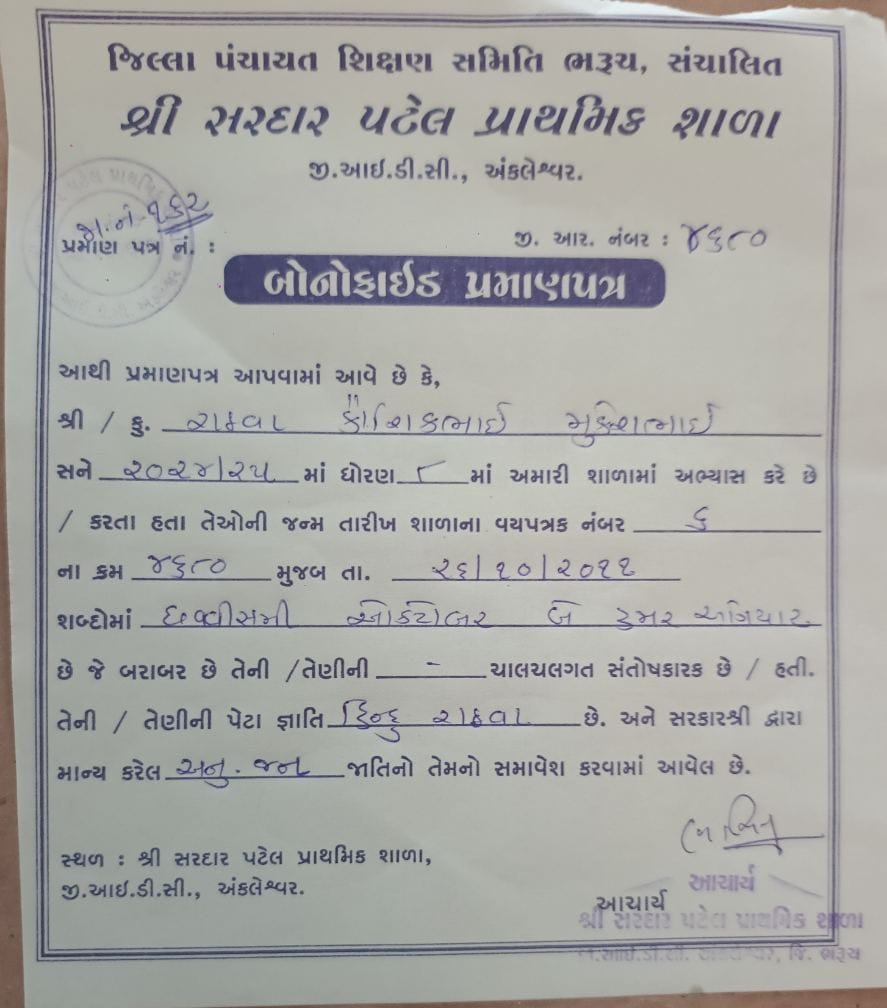 જિલ્લા પંચાયત શિક્ષણ સમિતિ ભરૂચ, સંચાલિત
શ્રી સરદાર પટેલ પ્રાથમિક શાળા
જી.આઈ.ડી.સી., અંકલેશ્વર.
જા.નં-૧૬૨
પ્રમાણ પત્ર નં. :
જી. આર. નંબર : ૪૬૮૦
બોનોફાઈડ પ્રમાણપત્ર
આથી પ્રમાણપત્ર આપવામાં આવે છે કે,
શ્રી / કુ. રાઠવા કૌશિકભાઈ મુકેશભાઈ
સને ૨૦૨૪/૨૫ માં ધોરણ ૮ માં અમારી શાળામાં અભ્યાસ કરે છે
/ કરતા હતા તેઓની જન્મ તારીખ શાળાના વયપત્રક નંબર ૬
ના ક્રમ ૪૬૮૦ મુજબ તા. ૨૬/૧૦/૨૦૧૧
શબ્દોમાં છવ્વીસમી ઓકટોબર બે હજાર અગિયાર
છે જે બરાબર છે તેની /તેણીની - ચાલચલગત સંતોષકારક છે / હતી.
તેની / તેણીની પેટા જ્ઞાતિ હિન્દુ રાઠવા છે. અને સરકારશ્રી દ્વારા
માન્ય કરેલ અનુ. જન જાતિનો તેમનો સમાવેશ કરવામાં આવેલ છે.
સ્થળ : શ્રી સરદાર પટેલ પ્રાથમિક શાળા,
જી.આઈ.ડી.સી., અંકલેશ્વર.
આચાર્ય
આચાર્ય
શ્રી સરદાર પટેલ પ્રાથમિક શાળા
જી.આઈ.ડી.સી. અંકલેશ્વર, જિ. ભરૂચ